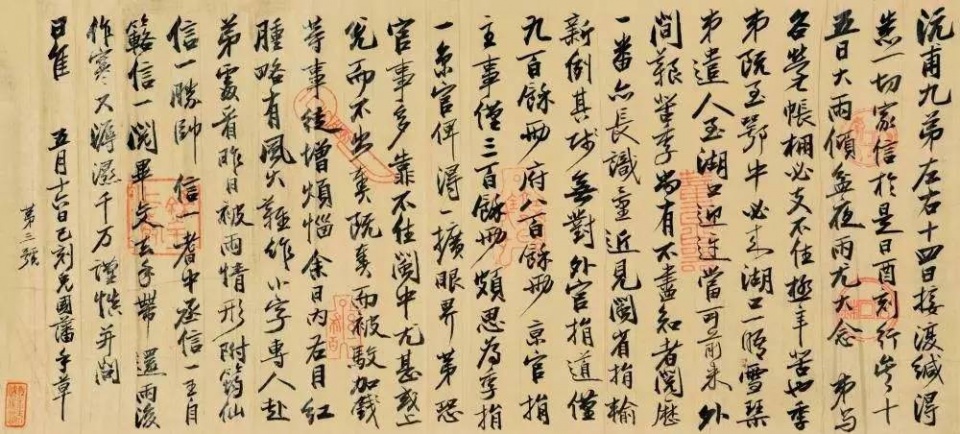 沅甫九弟左右十四日接渡緘得
悉一切家信於是日酉刻行十
五日大雨傾盆夜雨尤大念 弟与
各营帐棚必支不住極辛苦也季
弟既至鄂中必来湖口一晤雪琴
弟遣人至湖口迎迓當可前来外
間艱苦季尚有不盡知者閱歷
一番亦長識量近見閩省捐輸
新例其無對外官捐道僅
九百餘兩府八百餘兩 京官捐
主事僅三百餘兩頗思为季捐
一京官俾得一擴眼界第恐
官事多靠不住閩中尤甚或上
兑而不出奏既奏而被駁加
等事徒增煩惱余日内右目红
腫略有風火難作小字專人赴
弟處看昨日被雨情形附筠仙
信一勝帥 信一耆中丞信一
信一閱畢交去手帶 還雨後
作寒又濕千万謹慎并問
日佳 五月十六日巳刻兄國藩手草
第三號